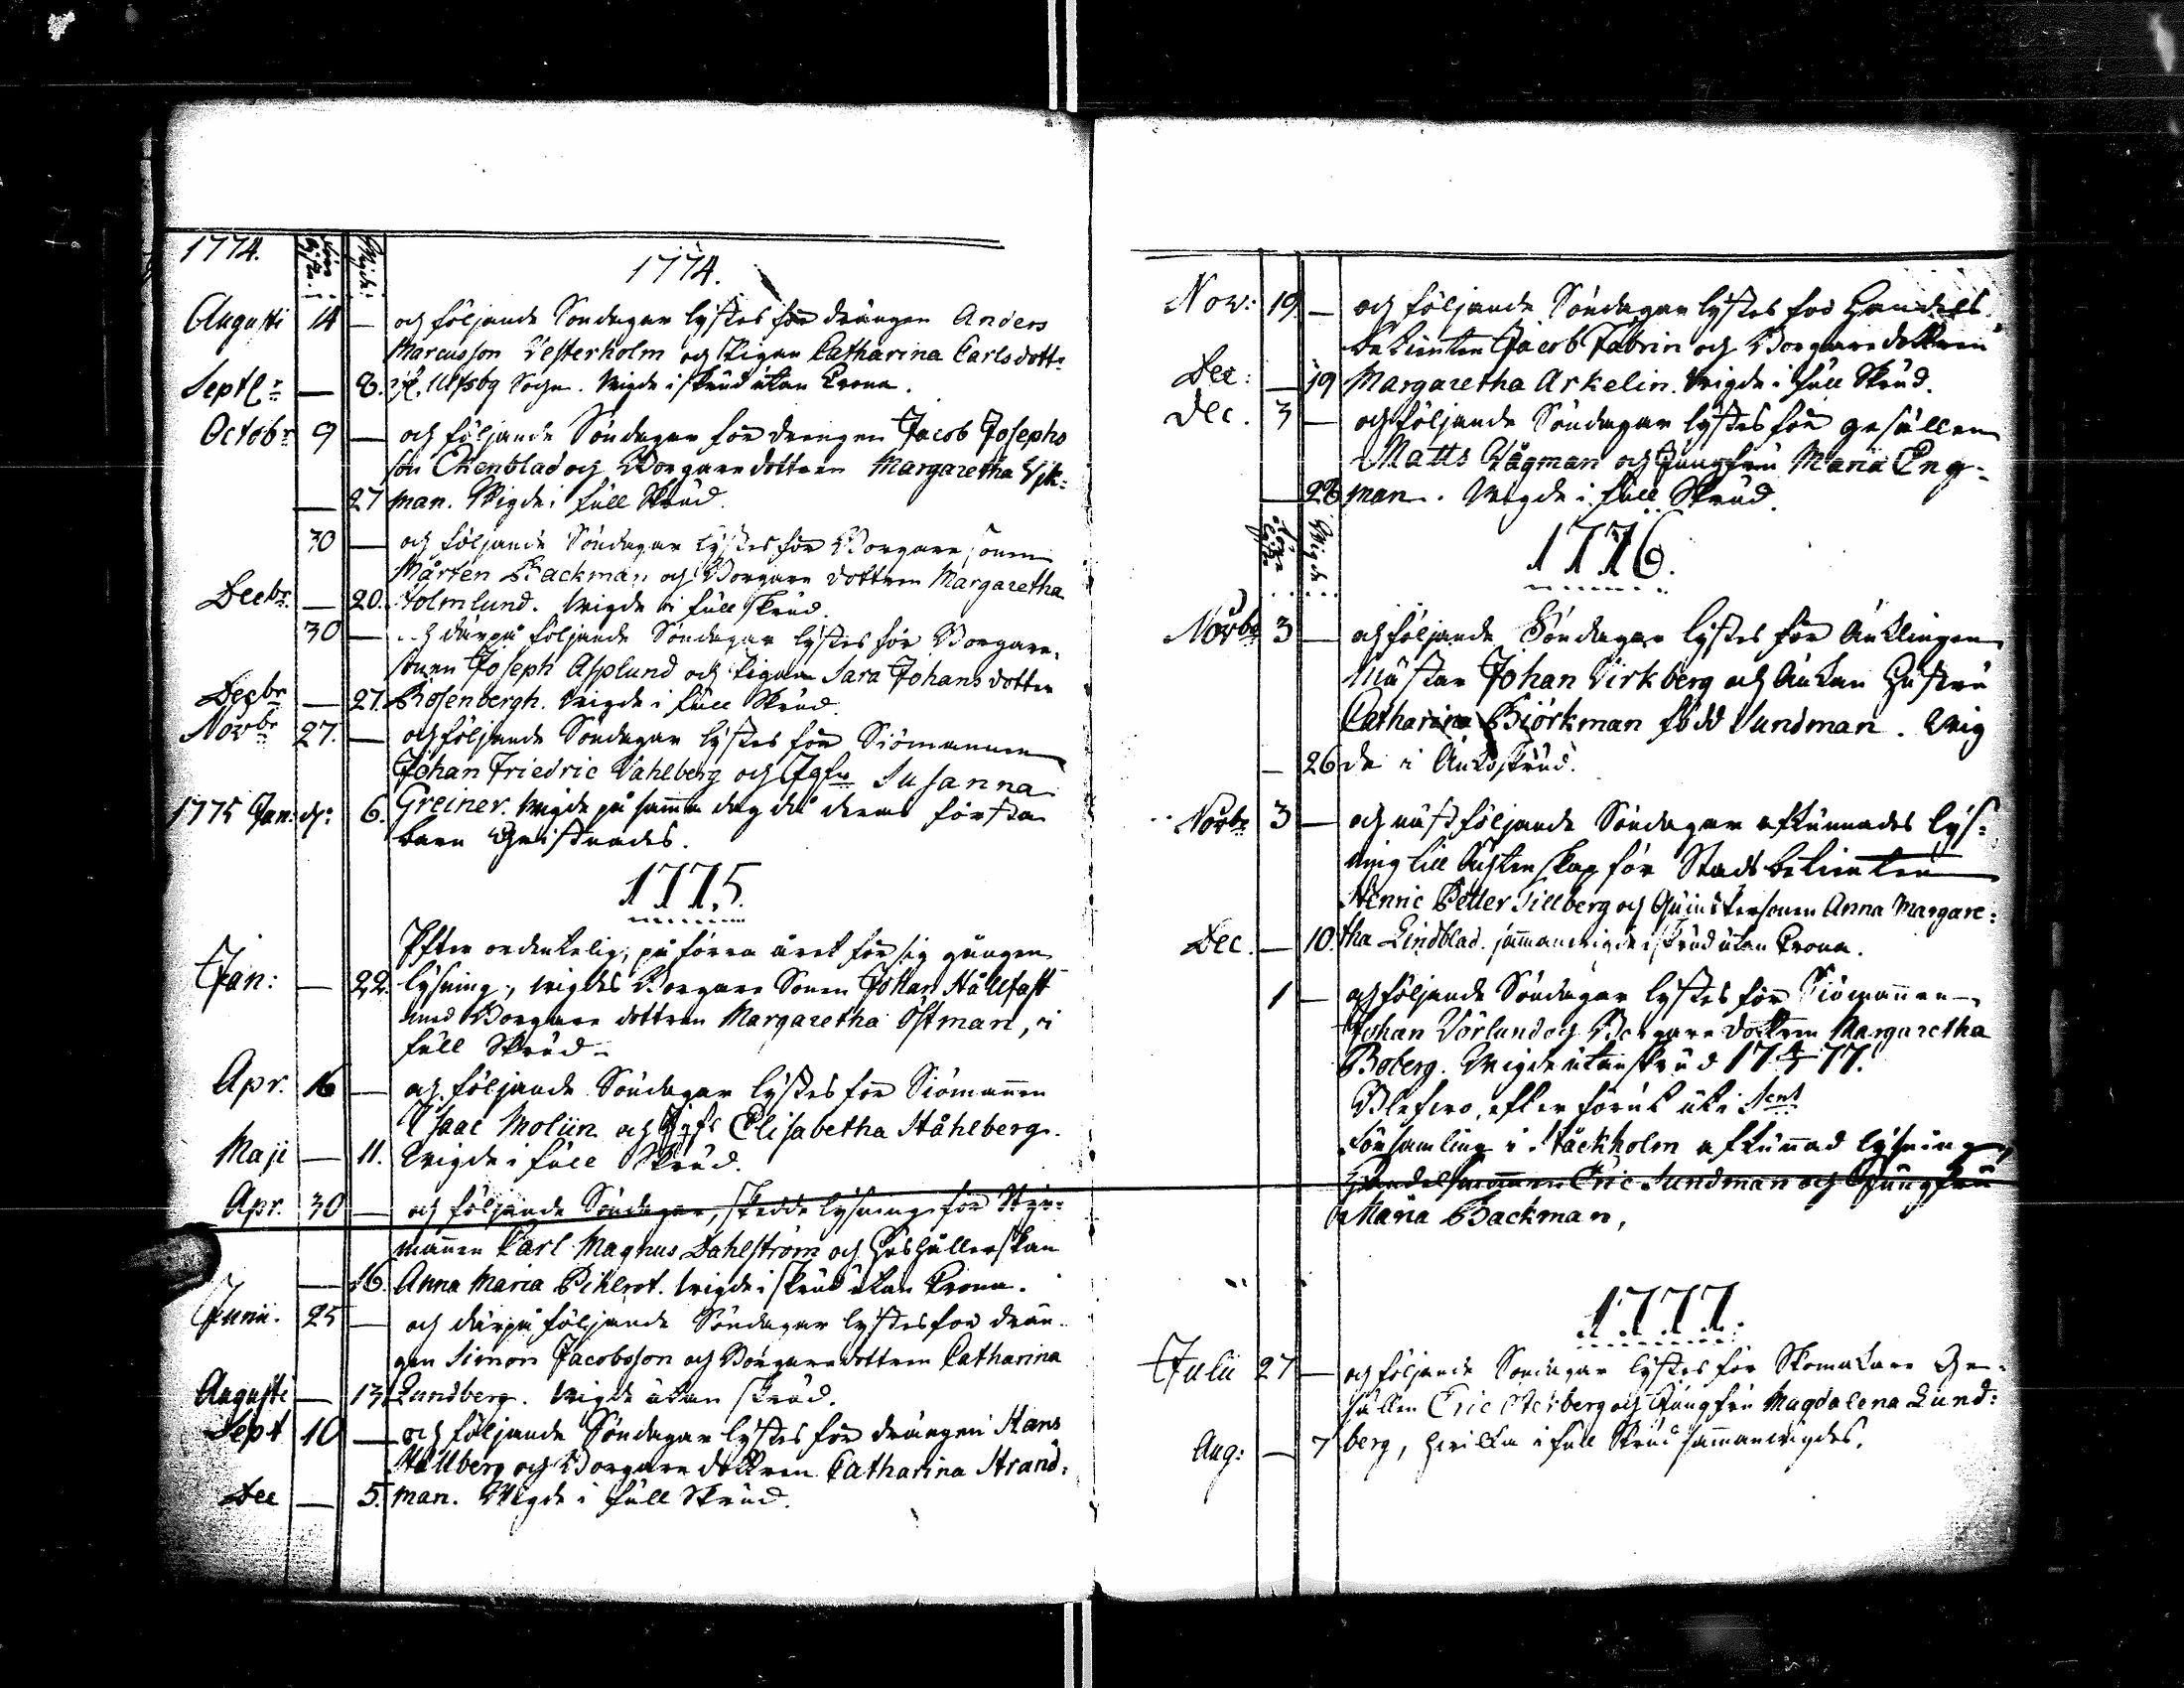 1774. 1774.
Augusti 14 — och följande Söndagar lystes för drängen Anders
Marcusson Vesterholm och Pigan Catharina Carlsdottr
Septbr — 8. Sogn. Wigde i skrud utan Crona.
Octobr 9 — och följande Söndagar för drengen Jacob Josephs
son Ekenblad och Borgaredottren Margaretha Vik=
— 27 man. Wigde i full Skrud.
30 — och följande Söndagar lystes för Borgare sonen
Mårten Backman och Borgare dottren Margaretha
Decbr. — 20. Holmlund. Wigde i full skrud.
30 — och därpå följande Söndagar lystes för Borgare=
sonen Joseph Asplund och Pigan Sara Johans dotter
Decbr — 27. Rosenbergh. Wigde i full Skrud.
Novbr 27. — och följande Söndagar lystes för Siömannen
Johan Friedric Vahlberg och Jgfr Susanna
1775 Jan: 6. Greiner. Wigde på samma dag då deras första
barn Christnades.
1775.
Efter ordentelig, på förra året för sig gången
Jan: — 22. lysning, wigdes Borgare Sonen Johan Hållfast
med Borgare dottren Margaretha Östman, i
full Skrud.
Apr. 16 — och följande Söndagar lystes för Siömannen
Isaac Moliin och Jgfr Elisabetha Ståhlberg.
Maji — 11. Wigde i full Skrud.
Apr. 30 — och följande Söndagar, skedde lysning för Styr=
mannen Carl Magnus Dahlström och Hushållerskan
— 16. Anna Maria Pihlrot. Wigde i skrud utan Crona.
Junii. 25 — och därpå följande Söndagar lystes för drän=
gen Simon Jacobsson och Borgaredottren Catharina
Augusti — 13. Lundberg. Wigde utan skrud.
Sept 10 — och följande Söndagar lystes för drängen Hans
Hållberg och Borgare dottren Catharina Strand=
Dec — 5. man. Wigde i full Skrud.
Nov: 19 — och följande Söndagar lystes för Handels
betienten Jacob Fabrin och Borgaredottren
Dec: — 19 Margaretha Arkelin. Wigde i full Skrud.
Dec. 3 — och följande Söndagar lystes för gesällen
Matts Vägman och Jungfru Maria Eng=
— 28 man. Wigde i full Skrud.
1776.
Novbr 3 — och följande Söndagar lystes för Änklingen
Mästar Johan Virkberg och Änkan Hustru
Catharina Biörkman född Sundman. Wig
— 26 de i Änkoskrud.
Novbr 3 — och näst följande Söndagar afkunnades lys=
ning till Äktenskap för Stads betienten
Henric Petter Sillberg och Quinspersonen Anna Margare=
Dec. — 10. tha Lindblad. sammanvigde i skrud utan Crona.
1 — och följande Söndagar lystes för Siömannen
Johan Vörlund och Borgare dottren Margaretha
Boberg. Wigde utan skrud 17 77.
Blefwo, efter förut uti
församling i Stockholm afkunnad lysning,
Handelsmannen Eric Sundman och Jungfru
Maria Backman,
1777.
Julii 27 — och följande Söndagar lystes för Skomakare Ge=
sällen Eric och Jungfru Magdalena Lund=
Aug: — 7 berg, hwilka i full Skrud sammanwigdes.